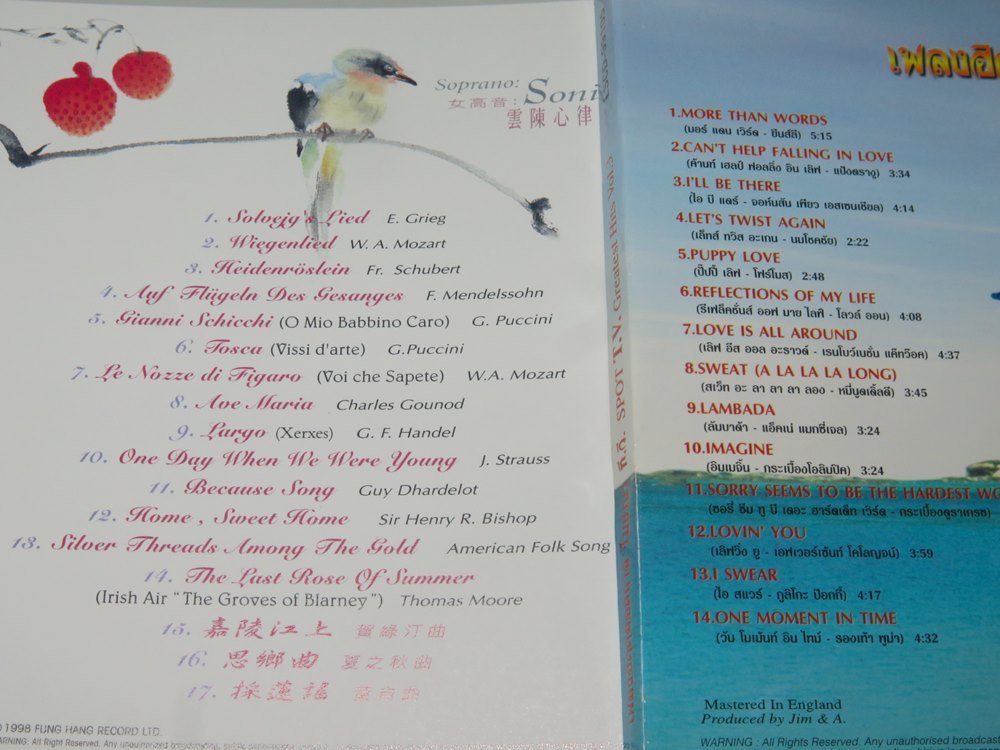 Soprano: Soni
女高音:
雲陳心律
1. Solvejg's Lied E. Grieg
2. Wiegenlied W. A. Mozart
3. Heidenröslein Fr. Schubert
4. Auf Flügeln Des Gesanges F. Mendelssohn
5. Gianni Schicchi (O Mio Babbino Caro) G. Puccini
6. Tosca (Vissi d'arte) G.Puccini
7. Le Nozze di Figaro (Voi che Sapete) W.A. Mozart
8. Ave Maria Charles Gounod
9. Largo (Xerxes) G. F. Handel
10. One Day When We Were Young J. Strauss
11. Because Song Guy Dhardelot
12. Home , Sweet Home Sir Henry R. Bishop
13. Silver Threads Among The Gold American Folk Song
14. The Last Rose Of Summer
(Irish Air "The Groves of Blarney") Thomas Moore
15. 嘉陵江上 賀綠汀曲
16. 思鄉曲 夏之秋曲
17. 採蓮謠 黃自曲
1998 FUNG HANG RECORD LTD.
WARNING: All Right Reserved. Any unauthorized broadcasting,
SPOT T.V. Greatest Hits Vol.3
เพลงฮิ
1.MORE THAN WORDS
(มอร์ แดน เวิร์ด - ยีนส์ลี) 5:15
2.CAN'T HELP FALLING IN LOVE
(ค้านท์ เฮลป์ ฟอลลิ่ง อิน เลิฟ - แป้งตรางู) 3:34
3.I'LL BE THERE
(ไอ บี แดร์ - จอห์นสัน เพียว เอสเซนเชียล) 4:14
4.LET'S TWIST AGAIN
(เล็ทส์ ทวิส อะเกน - นมโชคชัย) 2:22
5.PUPPY LOVE
(ปั๊ปปี้ เลิฟ - โฟร์โมส) 2:48
6.REFLECTIONS OF MY LIFE
(รีเฟล็คชั่นส์ ออฟ มาย ไลฟ์ - โลวส์ ออน) 4:08
7.LOVE IS ALL AROUND
(เลิฟ อีส ออล อะราวด์ - เรนโบว์เนชั่น แค๊ทว๊อค) 4:37
8.SWEAT (A LA LA LA LONG)
(สเว็ท อะ ลา ลา ลา ลอง - หมี่นูดเดิ้ลดี) 3:45
9.LAMBADA
(ลัมบาด้า - แอ็คเน่ แมกซี่เจล) 3:24
10.IMAGINE
(อิมเมจิ้น - กระเบื้องโอลิมปิค) 3:24
11.SORRY SEEMS TO BE THE HARDEST WO
(ซอรี่ ซีม ทู บี เดอะ ฮาร์ดเด็ท เวิร์ด - กระเบื้องดูราเกรซ)
12.LOVIN' YOU
(เลิฟวิ่ง ยู - เอฟเวอร์เซ้นท์ โคโลญจน์) 3:59
13.I SWEAR
(ไอ สแวร์ - กูลิโกะ ป๊อกกี้) 4:17
14.ONE MOMENT IN TIME
(วัน โมเม้นท์ อิน ไทม์ - รองเท้า พูม่า) 4:32
Mastered In England
Produced by Jim & A.
WARNING : All Rights Reserved. Any unauthorised broadcast